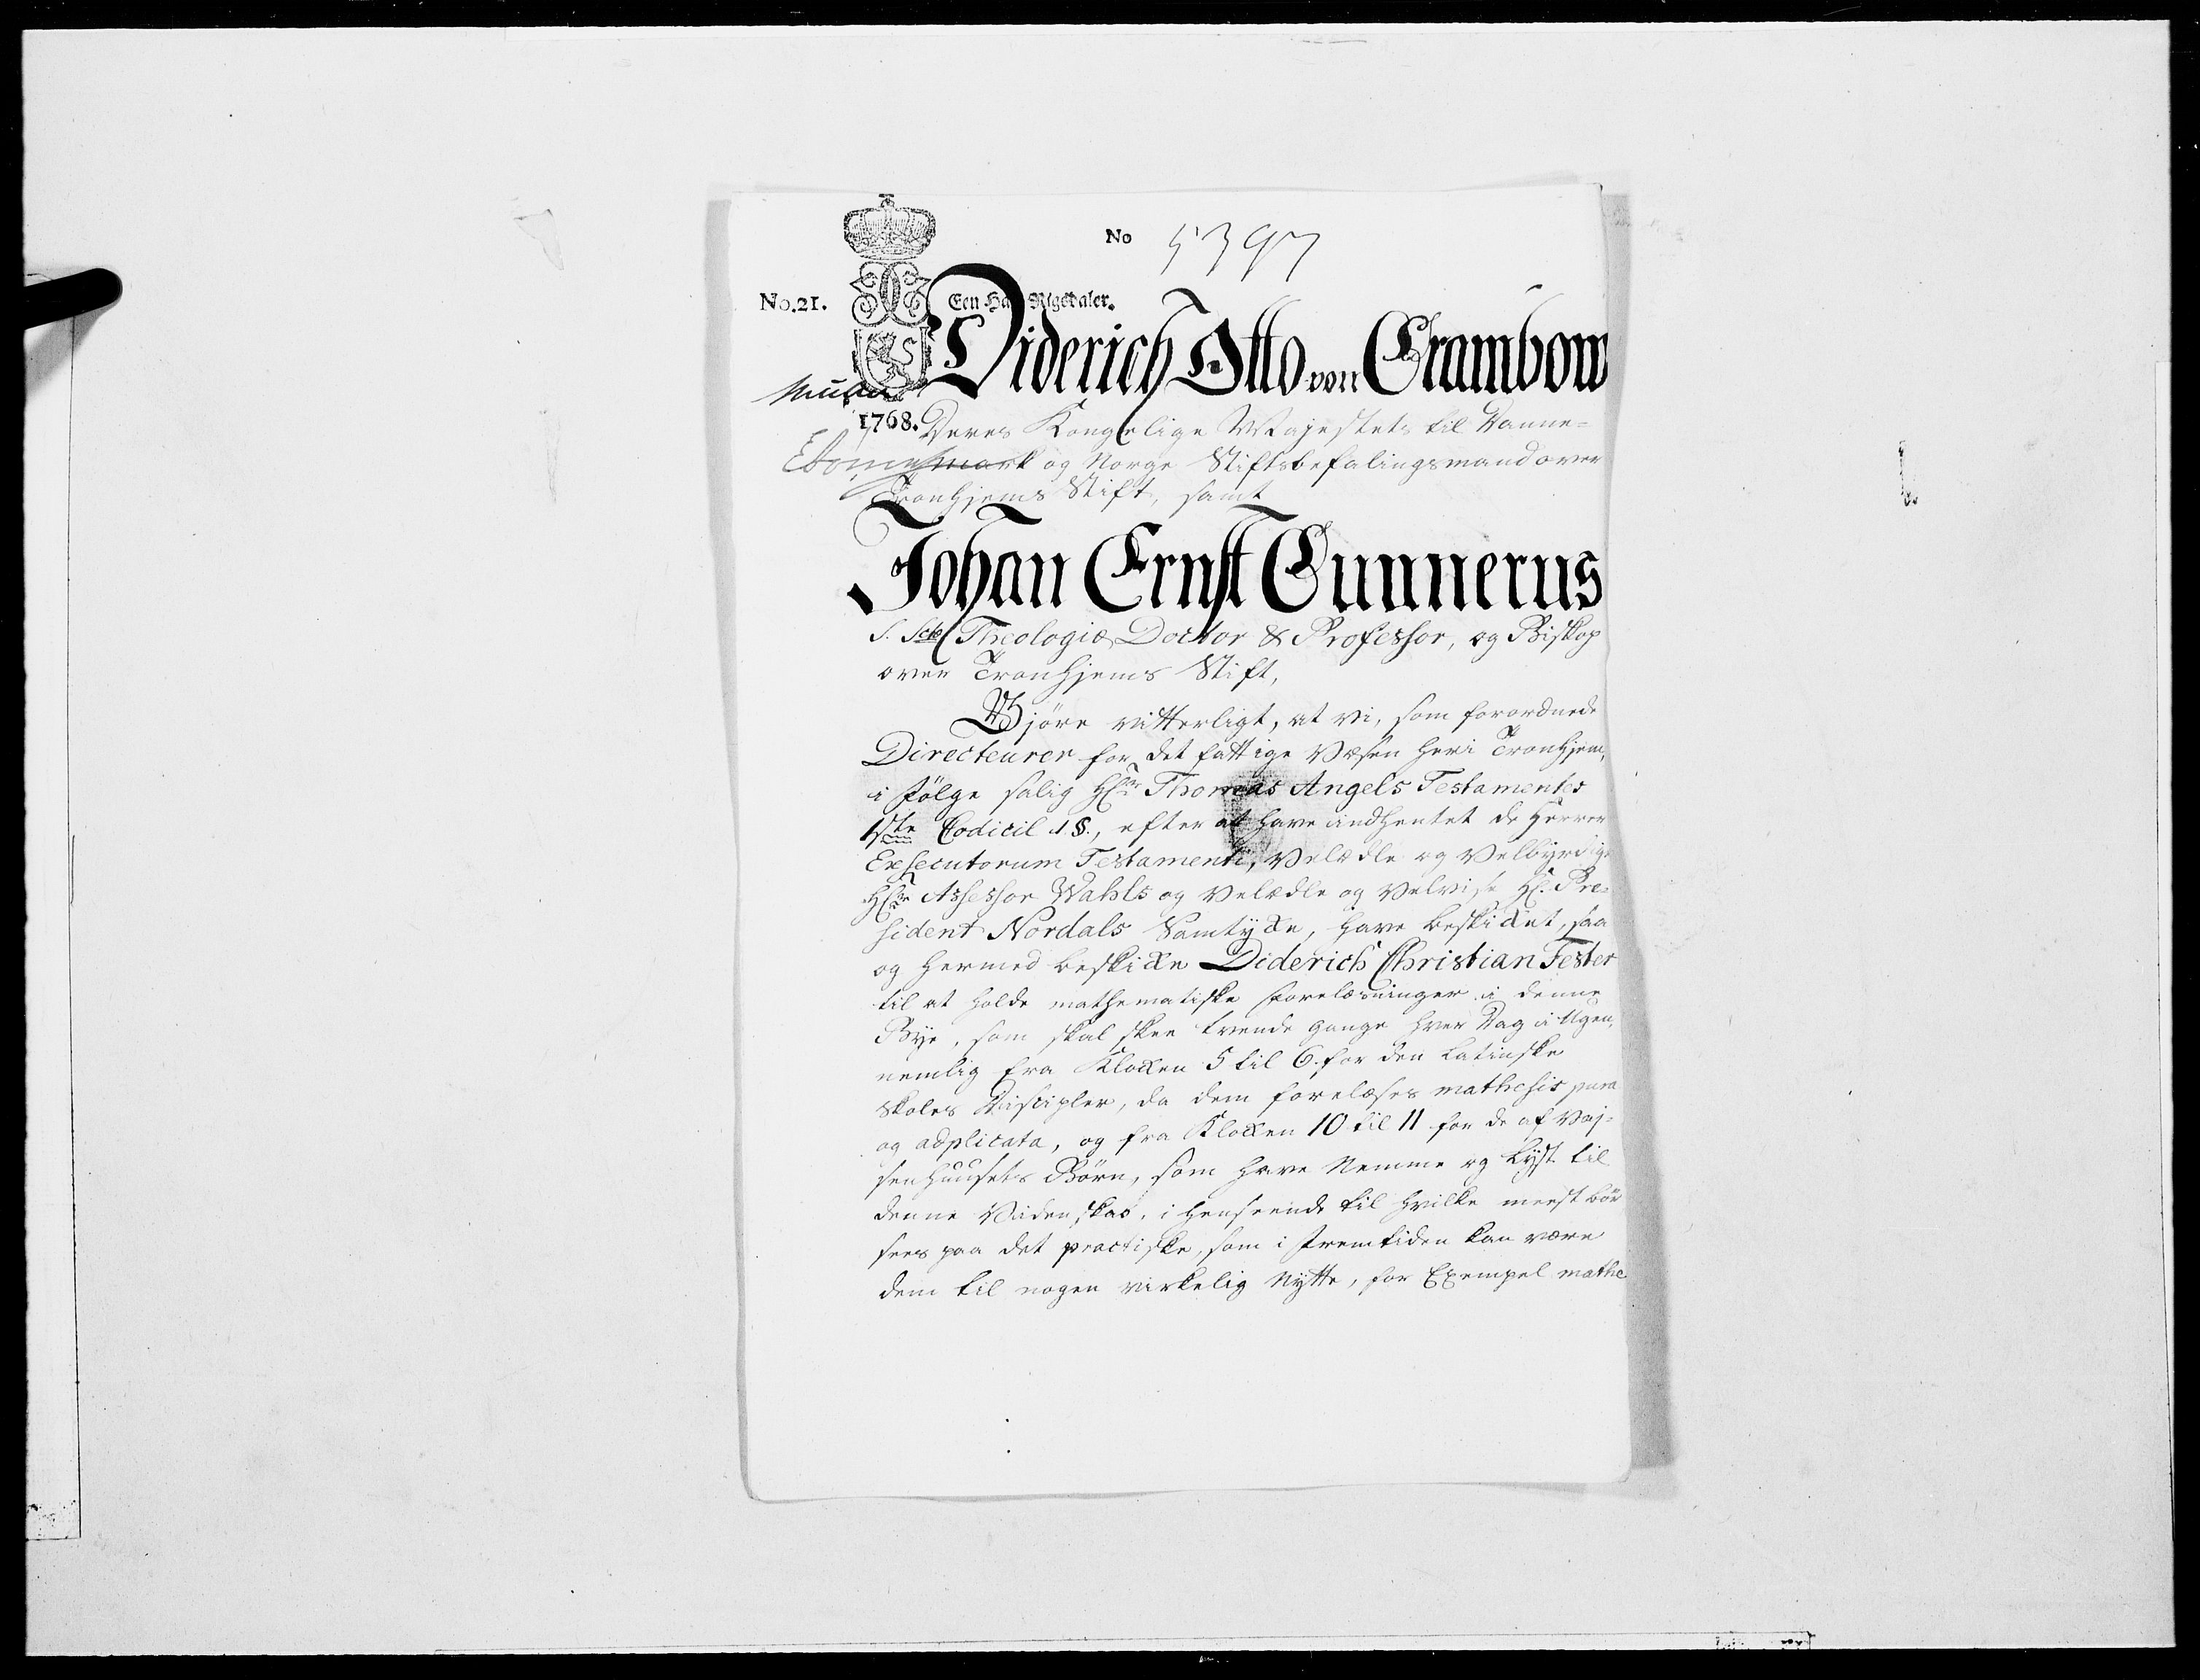 No 5397
No.21.
Een Ha Rigsdaler.
Diderich Otto von Grambow
1768. Deres Kongelige Majestets til Danne=
mark og Norge Stiftsbefalingsmand over
Tronhjems Stift, samt
Johan Ernst Gunnerus
S. Sctæ Theologiæ Doctor & Professor, og Biskop
over Tronhjems Stift,
Gjöre vitterligt, at vi, som forordnede
Directeurer for det fattige Væsen her i Tronhjem,
i Fölge salig Hr Thomas Angels Testamentes
1ste Codicil 1 §., efter at have indhentet de Herrer
Exsecutorum Testamenti, Velædle og Velbyrdige
Hr Assessor Wahls og Velædle og Velvise Hr. Pre=
sident Nordals Samtykke, have beskikket, saa
og hermed beskikke Diderich Christian Fester
til at holde mathematiske Forelæsninger i denne
Bye, som skal skee tvende gange hver Dag i Ugen,
nemlig fra Klokken 5 til 6. for den Latinske
Skoles Discipler, da dem forelæses mathesis pura
og adplicata, og fra Klokken 10 til 11 for de af Vaj=
senhuusets Börn, som have Nemme og Lyst til
denne Videnskab, i henseende til hvilke meest bör
sees paa det practiske, som i Fremtiden kan være
dem til nogen virkelig Nytte, for Exempel mathe